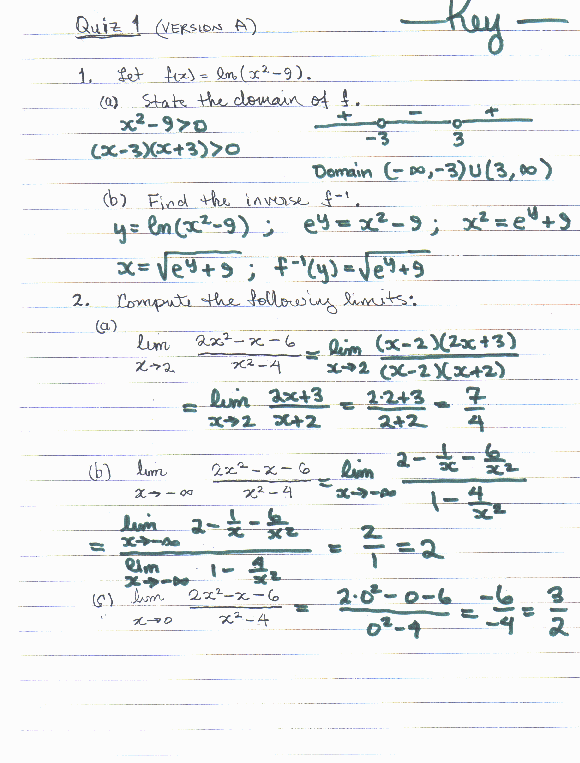 Quiz 1 (VERSION A) — Key —
1. Let f(x) = ln(x²-9).
(a) State the domain of f.
x²-9>0
+ - +
-3 3
(x-3)(x+3)>0
Domain (-∞,-3)∪(3,∞)
(b) Find the inverse f⁻¹.
y = ln(x²-9) ; e^y = x²-9 ; x² = e^y+9
x = √(e^y+9) ; f⁻¹(y) = √(e^y+9)
2. Compute the following limits:
(a) lim x→2 (2x²-x-6)/(x²-4) = lim x→2 ((x-2)(2x+3))/((x-2)(x+2))
= lim x→2 (2x+3)/(x+2) = (2·2+3)/(2+2) = 7/4
(b) lim x→-∞ (2x²-x-6)/(x²-4) = lim x→-∞ (2-1/x-6/x²)/(1-4/x²)
= (lim x→-∞ 2-1/x-6/x²)/(lim x→-∞ 1-4/x²) = 2/1 = 2
(c) lim x→0 (2x²-x-6)/(x²-4) = (2·0²-0-6)/(0²-4) = -6/-4 = 3/2